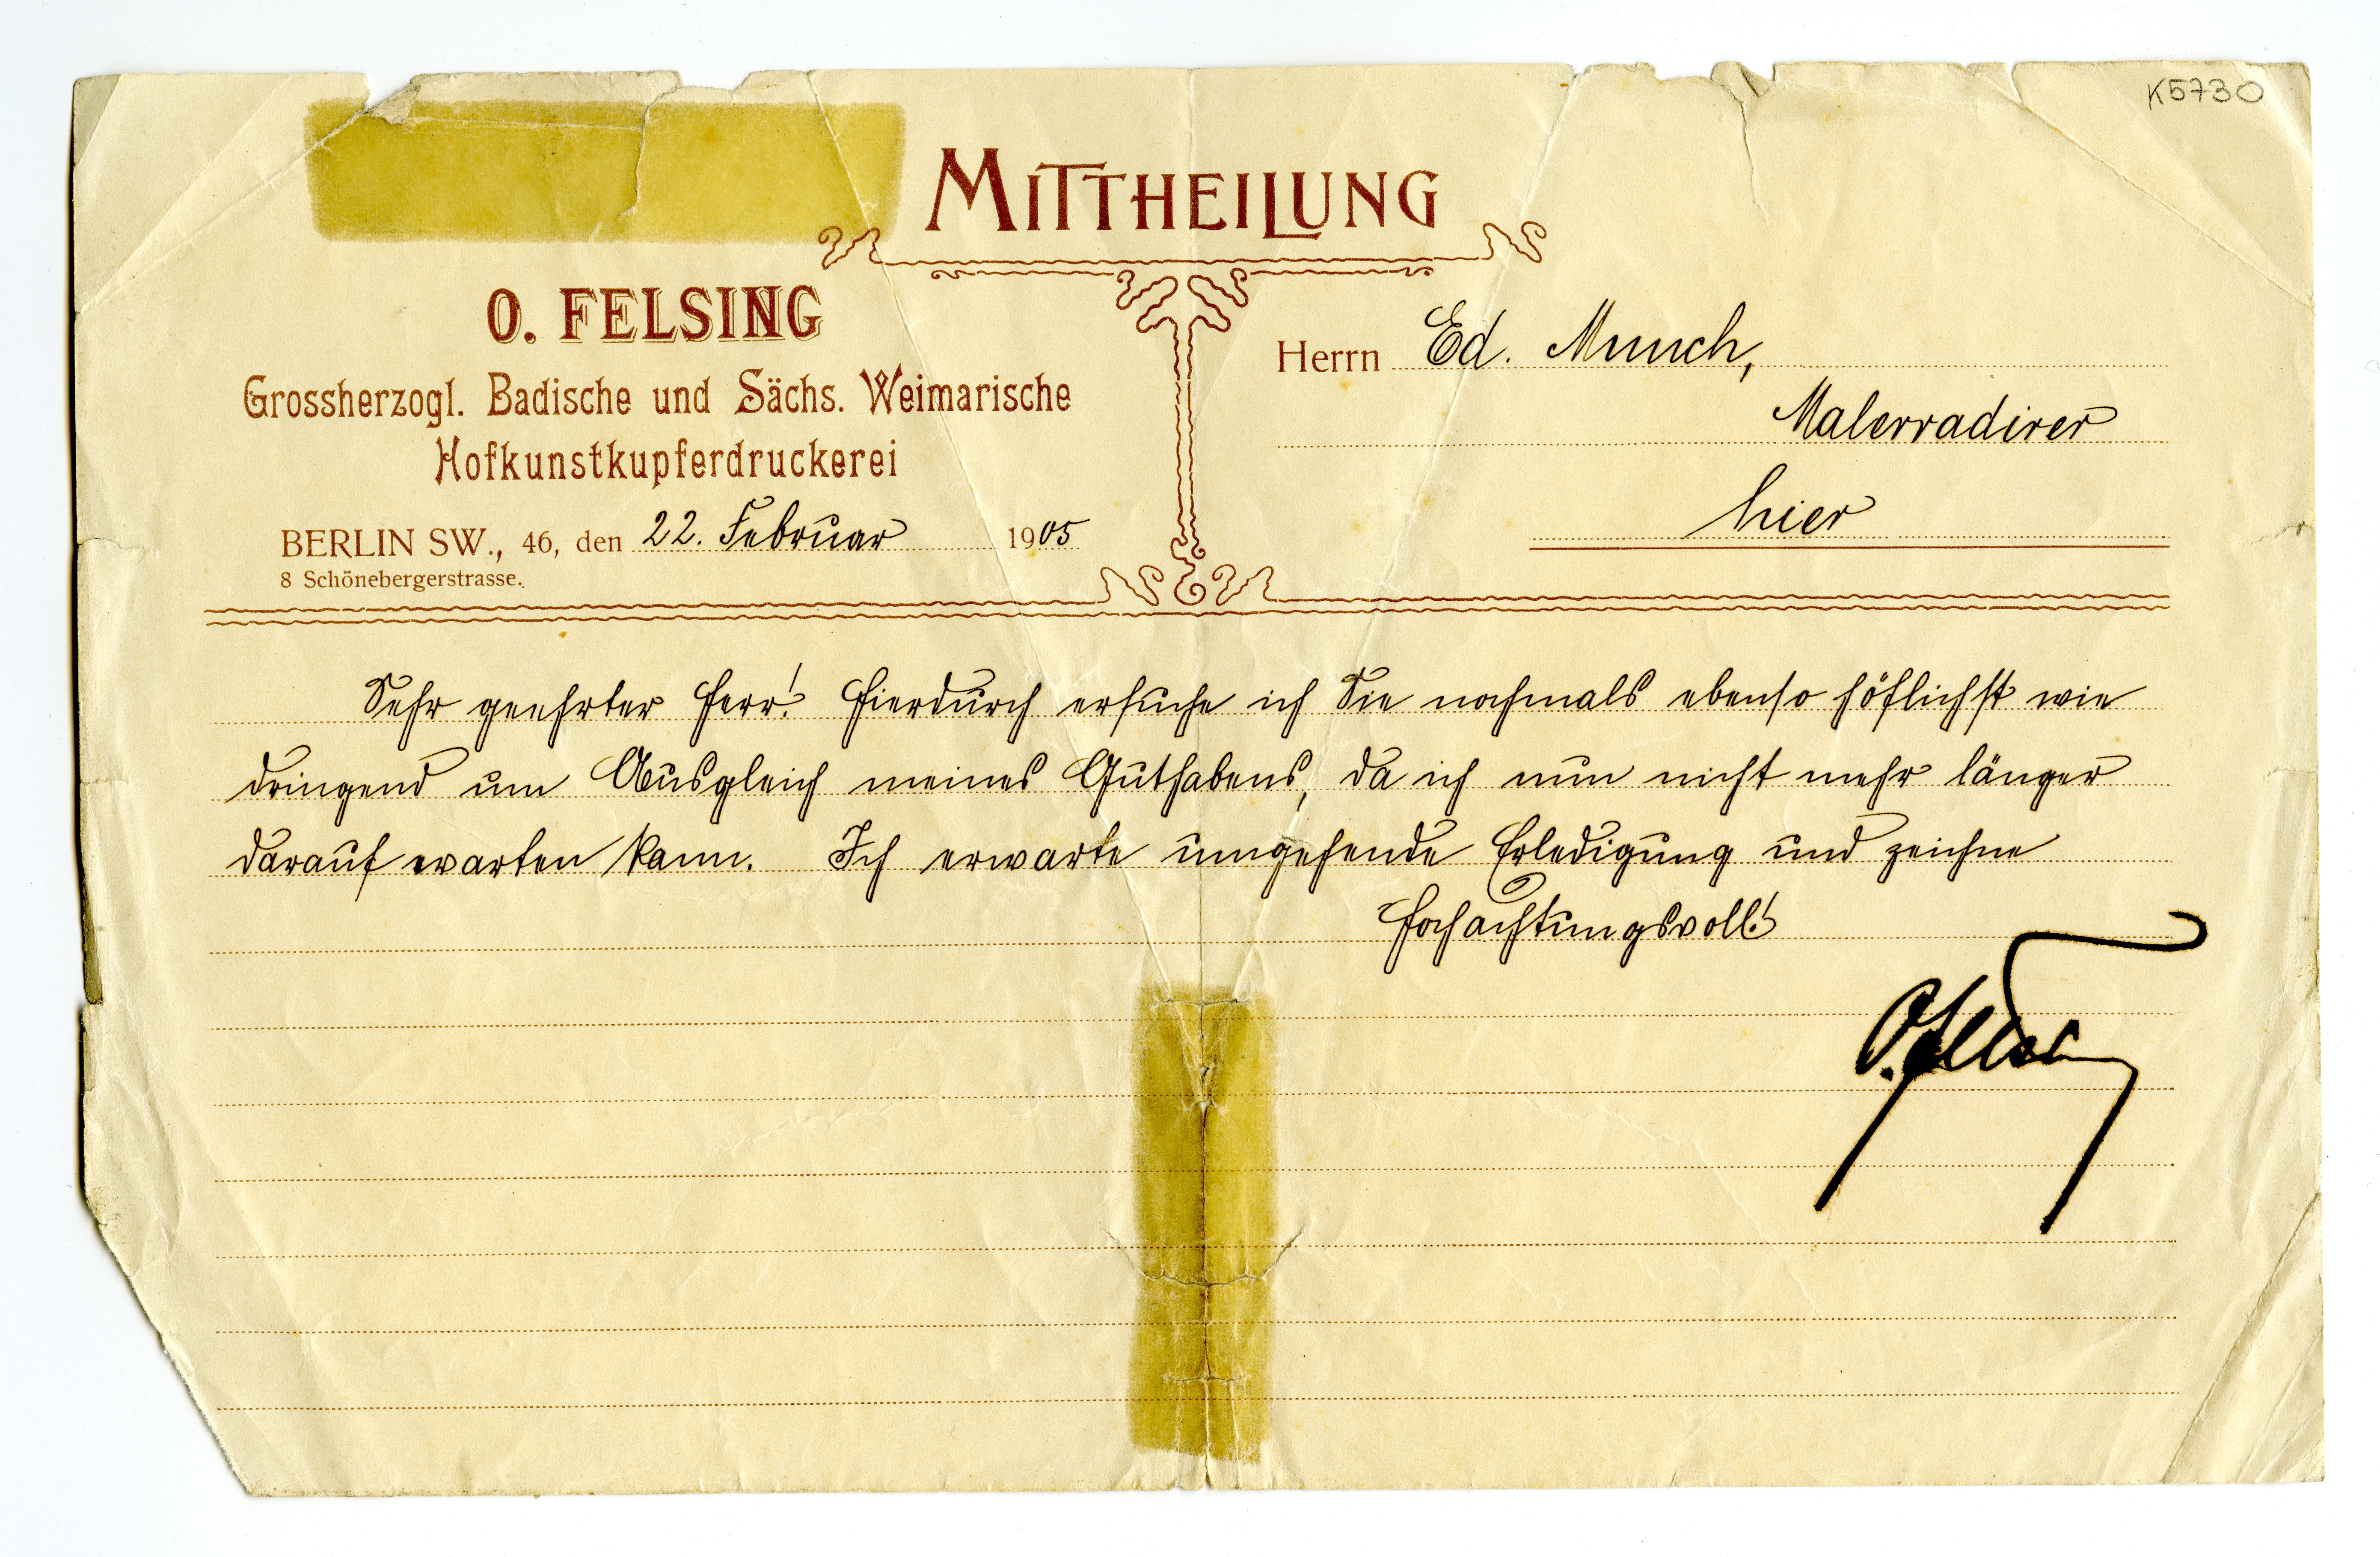 K5730
MITTHEILUNG
O. FELSING
Grossherzogl. Badische und Sächs. Weimarische
Hofkunstkupferdruckerei
BERLIN SW., 46, den 22. Februar 1905
8 Schönebergerstrasse.
Herrn Ed. Munch,
Malerradirer
hier
Sehr geehrter Herr! Hierdurch ersuche ich Sie nochmals ebenso höflichst wie
dringend um Ausgleich meines Guthabens, da ich nun nicht mehr länger
darauf warten kann. Ich erwarte umgehende Erledigung und zeichne
Hochachtungsvoll!
O. Felsing